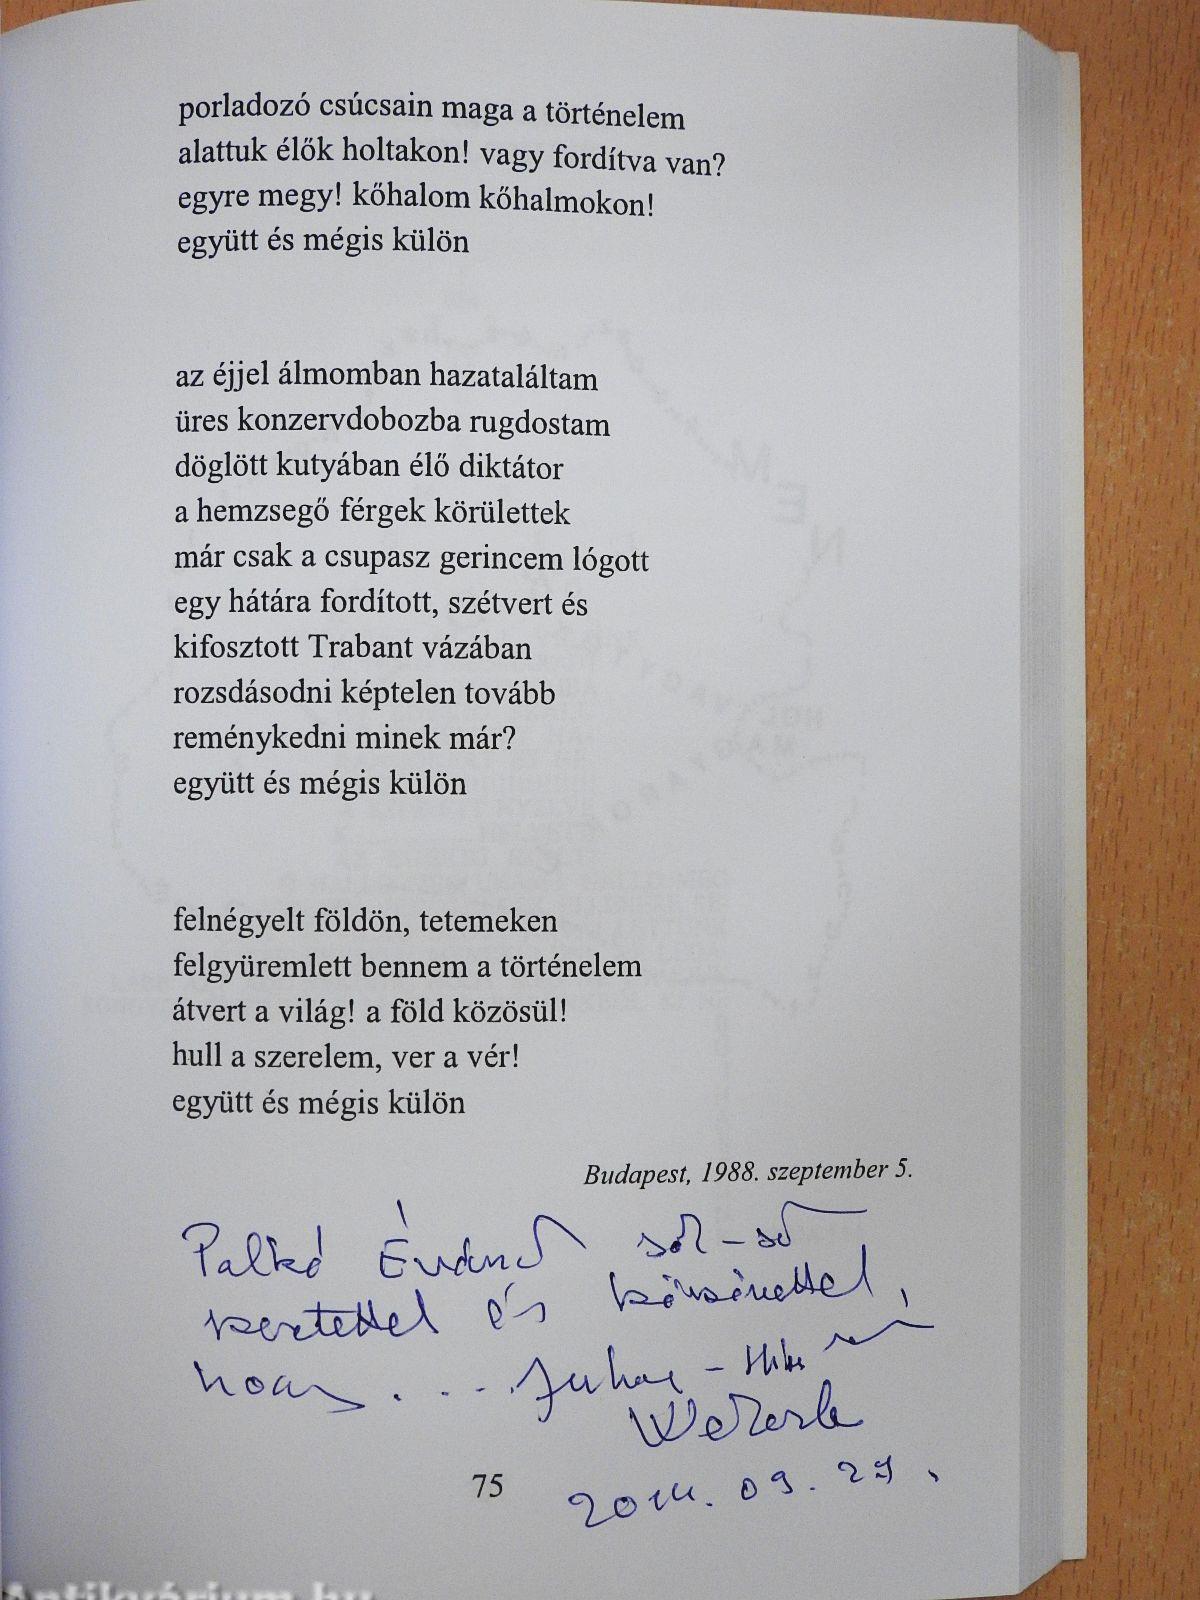 porladozó csúcsain maga a történelem
alattuk élők holtakon! vagy fordítva van?
egyre megy! kőhalom kőhalmokon!
együtt és mégis külön
az éjjel álmomban hazataláltam
üres konzervdobozba rugdostam
döglött kutyában élő diktátor
a hemzsegő férgek körülettek
már csak a csupasz gerincem lógott
egy hátára fordított, szétvert és
kifosztott Trabant vázában
rozsdásodni képtelen tovább
reménykedni minek már?
együtt és mégis külön
felnégyelt földön, tetemeken
felgyüremlett bennem a történelem
átvert a világ! a föld közösül!
hull a szerelem, ver a vér!
együtt és mégis külön
Budapest, 1988. szeptember 5.
Palkó Évának sok-sok
szeretettel és köszönettel,
hogy ....
75
2014. 09. 29.
Antikvárium.hu